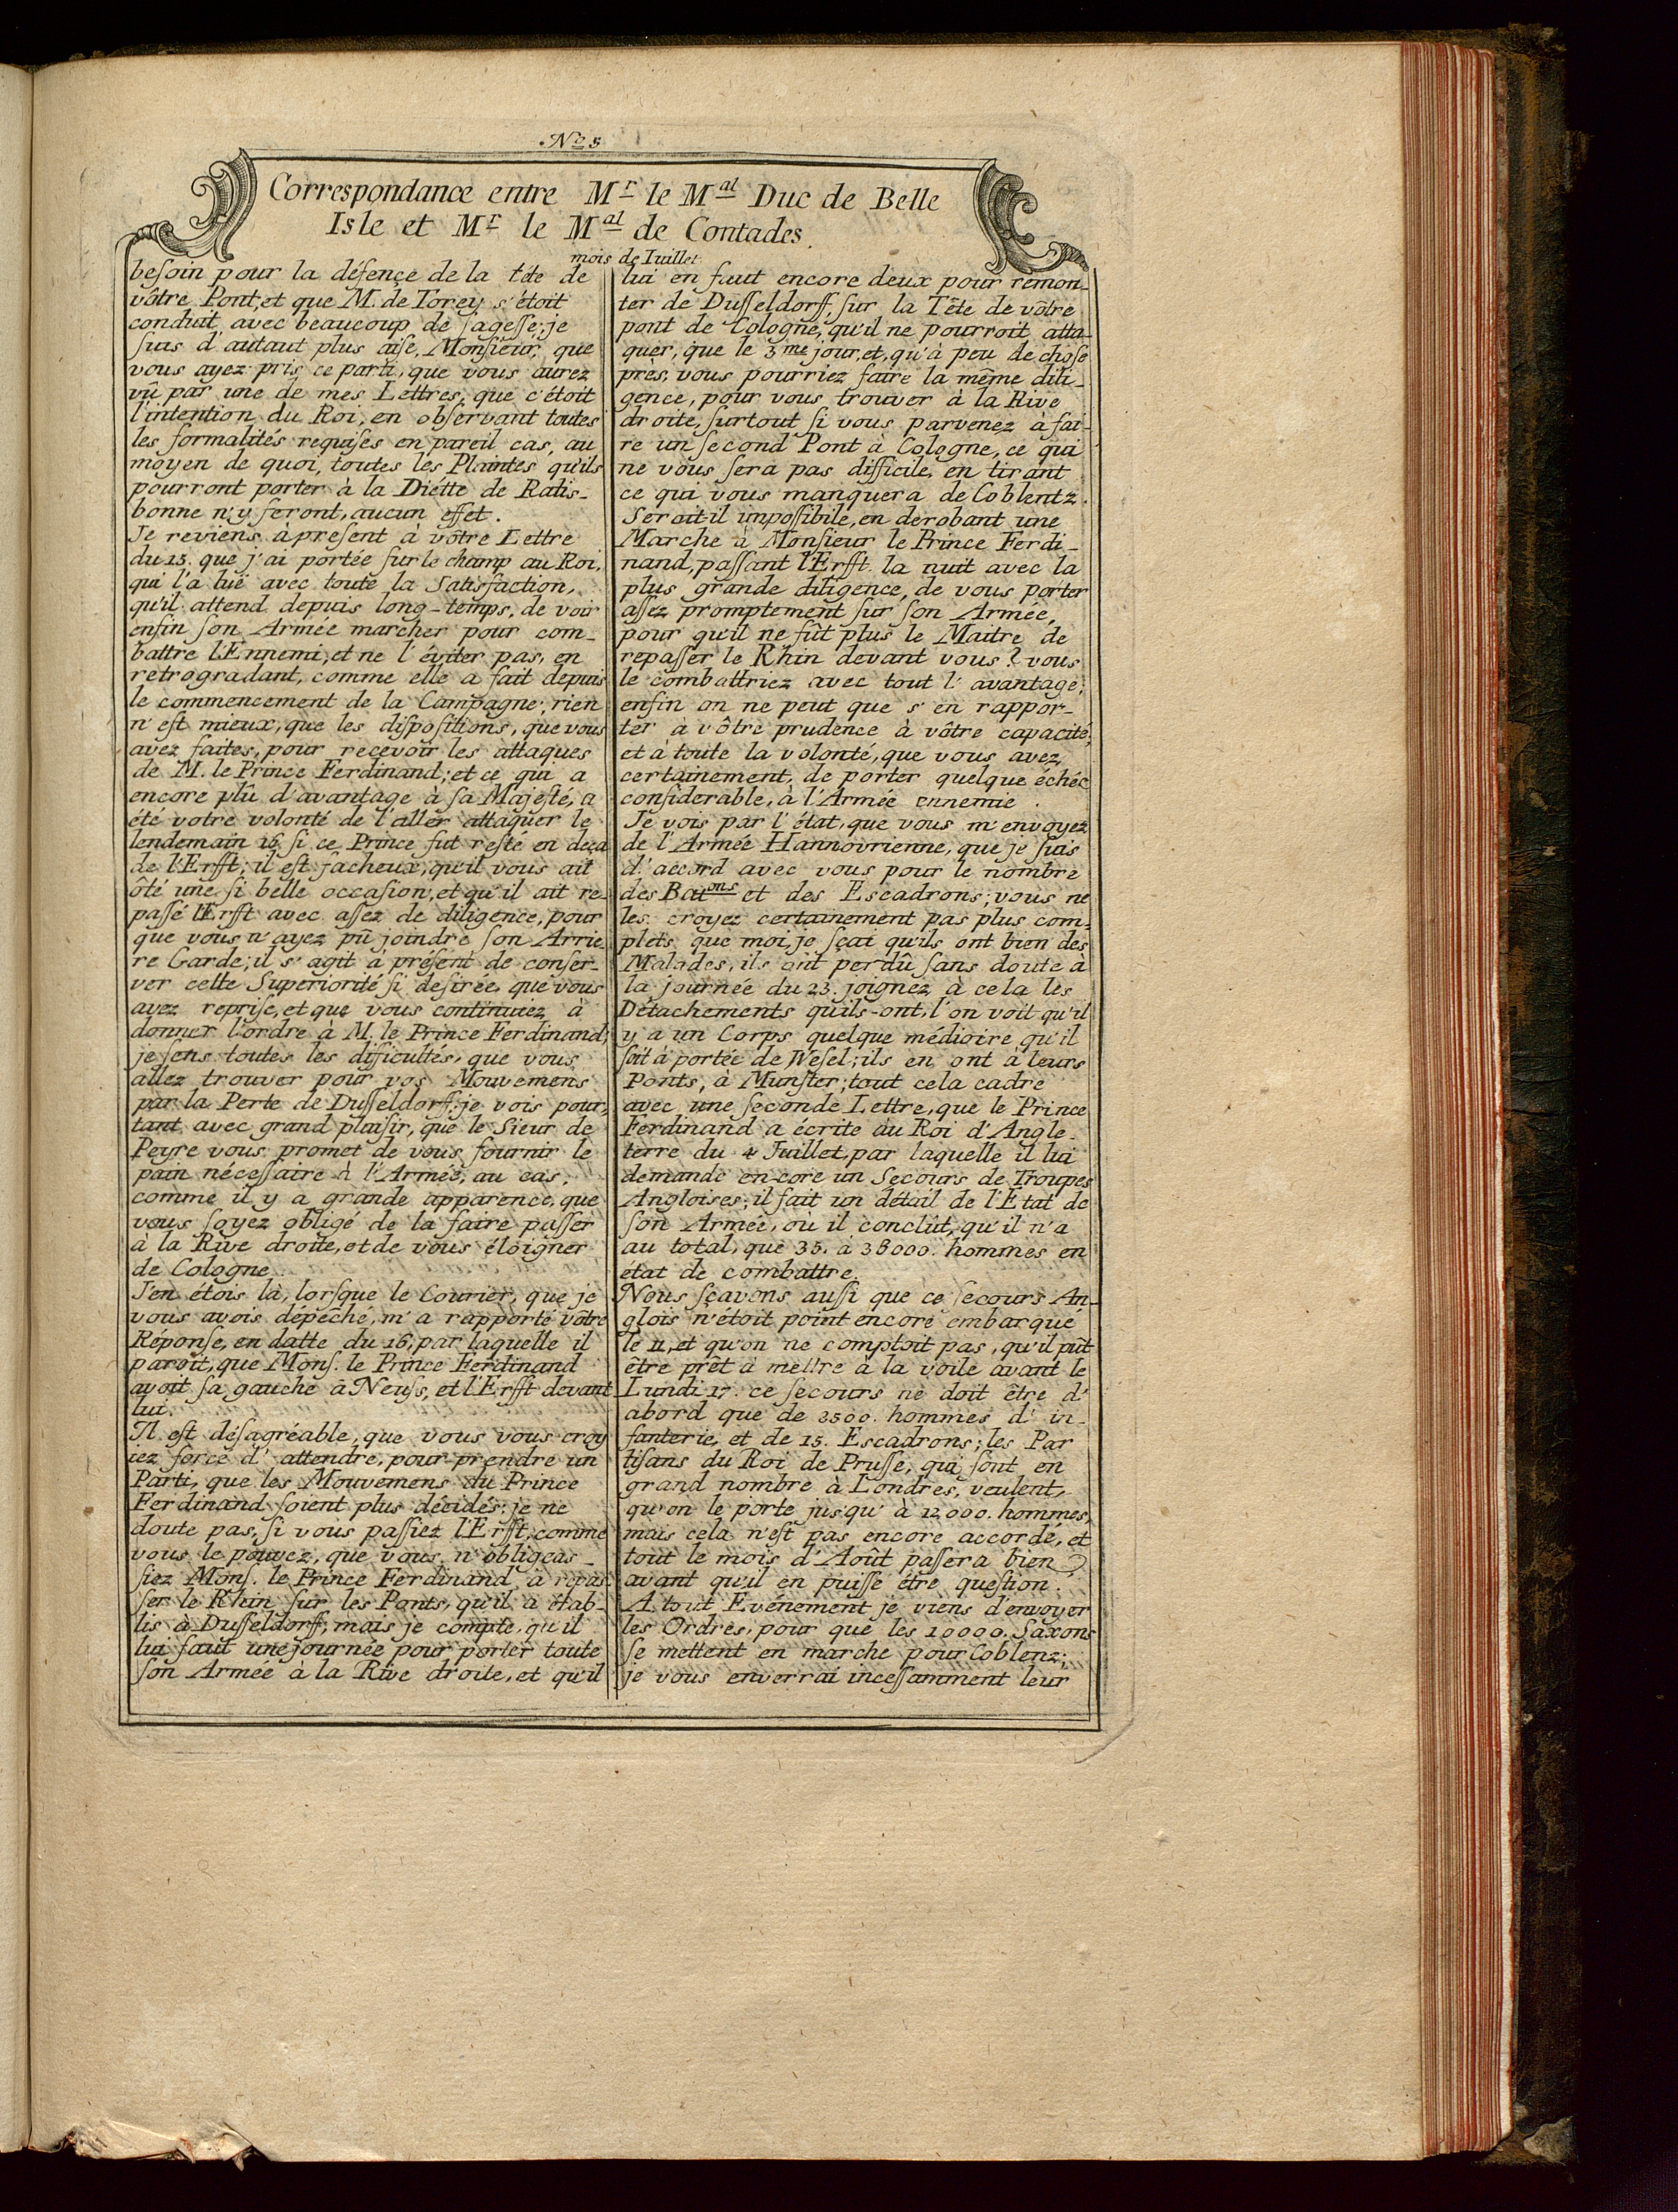 Nº 5
Correspondance entre Mr le Mal Duc de Belle
Isle et Mr le Mal de Contades.
mois de Iuillet
beſoin pour la défençe de la tête de
vôtre Pont, et que M. de Torey s'étoit
conduit avec beaucoup de ſageſſe; je
ſuis d'autaut plus aiſe, Monſieur, que
vous ayez pris ce parti, que vous aurez
vû par une de mes Lettres, que c'étoit
l'intention du Roi, en obſervant toutes
les formalités requiſes en pareil cas, au
moyen de quoi, toutes les Plaintes qu'ils
pourront porter à la Diétte de Ratis-
bonne n'y feront, aucun effet.
Je reviens à preſent à vôtre Lettre
du 15. que j'ai portée ſur le champ au Roi,
qui l'a luë avec toute la Satisfaction,
qu'il attend depuis long-temps, de voir
enfin ſon Armée marcher pour com-
battre l'Ennemi, et ne l'éviter pas, en
retrogradant, comme elle a fait depuis
le commencement de la Campagne; rien
n'eſt mieux, que les diſpoſitions, que vous
avez faites, pour recevoir les attaques
de M. le Prince Ferdinand; et ce qui a
encore plû d'avantage à ſa Majeſté, a
été votre volonté de l'aller attaquer le
lendemain 16, ſi ce Prince fut reſté en deça
de l'Erfft; il eſt facheux, qu'il vous ait
ôté une ſi belle occaſion, et qu'il ait re-
paſſé l'Erfft avec aſſez de diligence, pour
que vous n'ayez pû joindre ſon Arrie-
re Garde; il s'agit à préſent de conſer-
ver cette Superiorité ſi deſirée, que vous
avez repriſe, et que vous continuiez à
donner l'ordre à M. le Prince Ferdinand;
je ſens toutes les difficultés, que vous
allez trouver pour vos Mouvemens
par la Perte de Duſſeldorff; je vois pour-
tant avec grand plaiſir, que le Sieur de
Peyre vous promet de vous fournir le
pain néceſſaire à l'Armée, au cas,
comme il y a grande apparence, que
vous ſoyez obligé de la faire paſſer
à la Rive droite, et de vous éloigner
de Cologne.
J'en étois là, lorſque le Courier, que je
vous avois dépêché, m'a rapporté vôtre
Réponſe, en datte du 16, par laquelle il
paroît, que Monſ. le Prince Ferdinand
avoit ſa gauche à Neuſs, et l'Erfft devant
lui.
Il eſt déſagréable, que vous vous croy
iez forcé d'attendre, pour prendre un
Parti, que les Mouvemens du Prince
Ferdinand ſoient plus décidés; je ne
doute pas, ſi vous paſſiez l'Erfft, comme
vous le pouvez, que vous n'obligeas-
ſiez Monſ. le Prince Ferdinand à repas-
ſer le Rhin ſur les Ponts, qu'il a étab-
lis à Duſſeldorff; mais je compte, qu'il
lui faut une journée pour porter toute
ſon Armée à la Rive droite, et qu'il
lui en faut encore deux pour remon-
ter de Duſſeldorff, ſur la Tête de vôtre
pont de Cologne, qu'il ne pourroit atta-
quer, que le 3me jour, et, qu'à peu de choſe
près, vous pourriez faire la même dili-
gence, pour vous trouver à la Rive
droite, ſurtout ſi vous parvenez à fai-
re un ſecond Pont à Cologne, ce qui
ne vous ſera pas difficile, en tirant
ce qui vous manquera de Coblentz.
Seroit il impoſſibile, en derobant une
Marche à Monſieur le Prince Ferdi-
nand, paſſant l'Erfft. la nuit avec la
plus grande diligence, de vous porter
aſſez promptement ſur ſon Armée,
pour qu'il ne fût plus le Maitre de
repaſſer le Rhin devant vous? vous
le combattriez avec tout l'avantage;
enfin on ne peut que s'en rappor-
ter à vôtre prudence à vôtre capacité,
et à toute la volonté, que vous avez
certainement, de porter quelque échéc
conſiderable, à l'Armée ennemie.
Je vois par l'état, que vous m'envoyez
de l'Armée Hannovrienne, que je ſuis
d'accord avec vous pour le nombre
des Batons et des Escadrons; vous ne
les croyez certainement pas plus com-
plets que moi, je ſçai qu'ils ont bien des
Malades, ils ont perdû ſans doute à
la journée du 23. joignez à cela les
Détachements qu'ils-ont, l'on voit qu'il
y a un Corps quelque médioire qu'il
ſoit à portée de Weſel; ils en ont à leurs
Ponts, à Munſter; tout cela cadre
avec une ſeconde Lettre, que le Prince
Ferdinand a écrite au Roi d'Angle-
terre du 4 Juillet, par laquelle il lui
demande en-core un Secours de Troupes
Angloises; il fait un détail de l'Etat de
ſon Armée, où il conclût, qu'il n'a
au total, que 35. à 38000. hommes en
état de combattre.
Nous ſçavons auſſi que ce ſecours An-
glois n'étoit point encore embarque
le 11, et qu'on ne comptoit pas, qu'il pût
être prêt à mettre à la voile avant le
Lundi 17. ce ſecours ne doit être d'
abord que de 2500. hommes d'in-
fanterie, et de 15. Escadrons; les Par
tiſans du Roi de Pruſſe, qui ſont en
grand nombre à Londres, veulent,
qu'on le porte jusqu'à 12000. hommes,
mais cela n'eſt pas encore accordé, et
tout le mois d'Août paſſera bien
avant qu'il en puiſſe être queſtion.
A tout Evénement je viens d'envoyer
les Ordres, pour que les 10000. Saxons
ſe mettent en marche pour Coblenz;
je vous enverrai inceſſamment leur